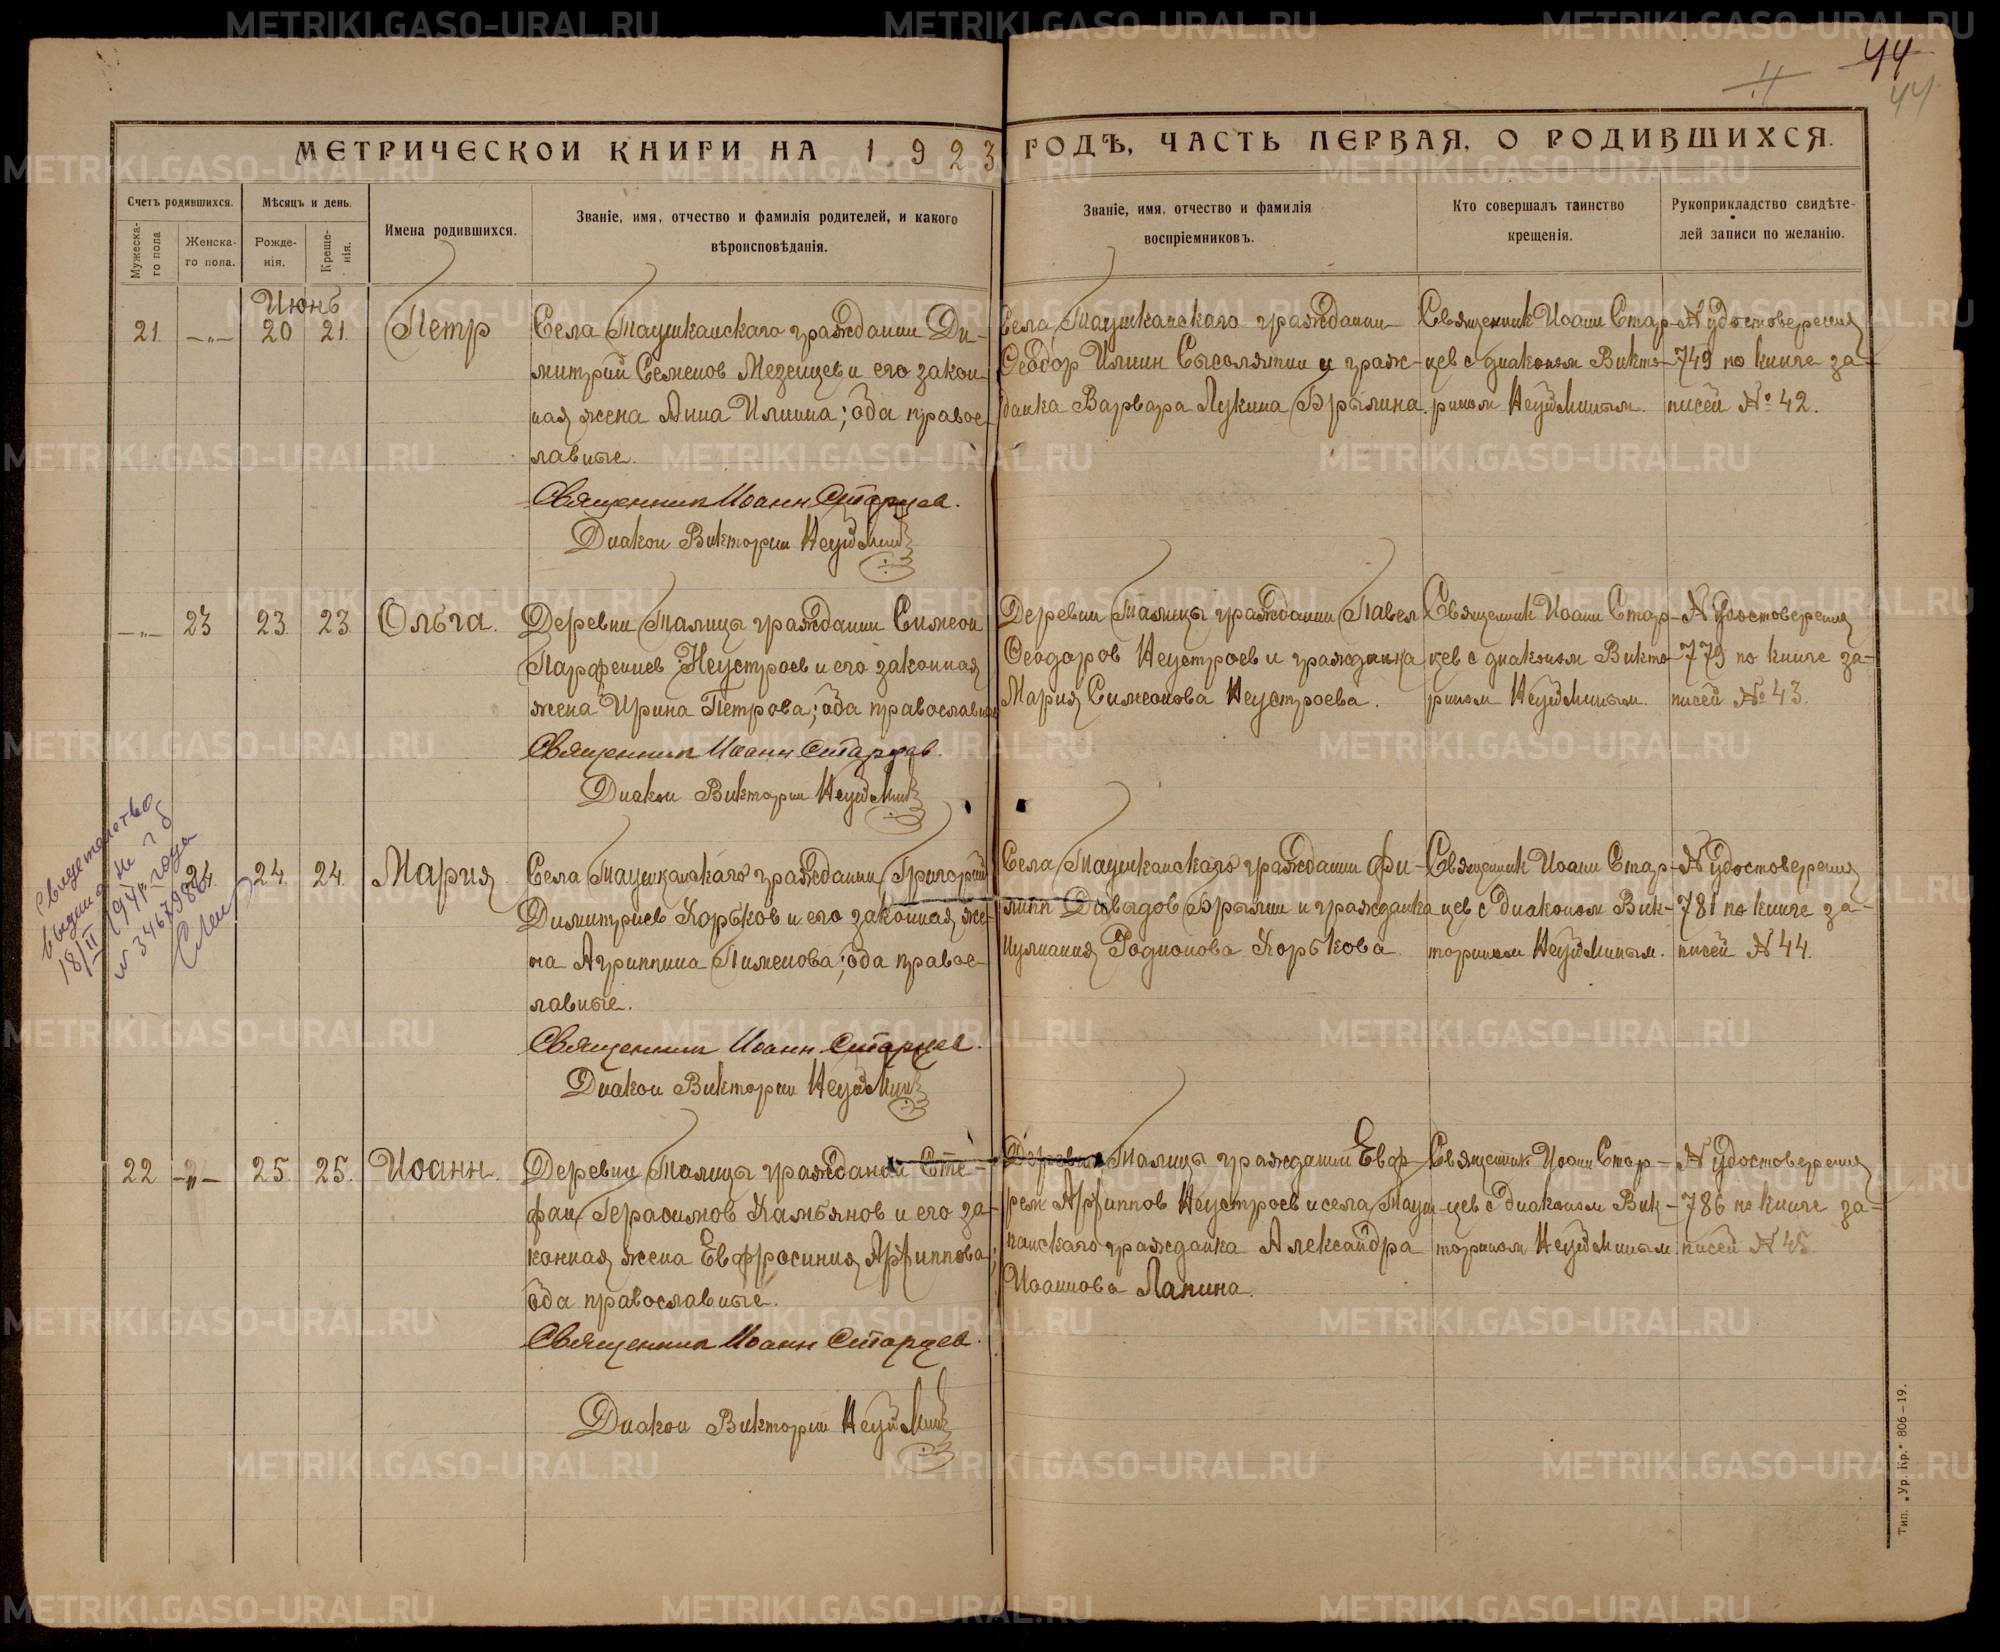 44
44
МЕТРИЧЕСКОЙ КНИГИ НА 1923 ГОДЪ, ЧАСТЬ ПЕРВАЯ, О РОДИВШИХСЯ.
Счетъ родившихся.
Мужеска-
го пола
Женска-
го пола.
Мѣсяцъ и день.
Рожде-
нія.
Креще-
нія.
Имена родившихся.
Званіе, имя, отчество и фамилія родителей, и какого
вѣроисповѣданія.
Званіе, имя, отчество и фамилія
воспріемниковъ.
Кто совершалъ таинство
крещенія.
Рукоприкладство свидѣте-
лей записи по желанію.
Июнь
21 -"- 20 21 Петр
Села Таушканского гражданин Ди-
митрий Семенов Мезенцев и его закон-
ная жена Анна Илиина; оба правос-
лавные.
Священник Иоанн Старцев.
Диакон Викторин Неуймин
Села Таушканского гражданин
Феодор Илиин Сысолятин и граж-
данка Варвара Лукина Брылина.
Священник Иоанн Стар-
цев с диаконом Викто-
рином Неуйминым.
№ удостоверения
749 по книге за-
писей № 42.
-"- 23 23 23 Ольга.
Деревни Талицы гражданин Симеон
Парфениев Неустроев и его законная
жена Ирина Петрова; оба православные
Священник Иоанн Старцев.
Диакон Викторин Неуймин
Деревни Талицы гражданин Павел
Феодоров Неустроев и гражданка
Мария Симеонова Неустроева.
Священник Иоанн Стар-
цев с диаконом Викто-
рином Неуйминым.
№ удостоверения
779 по книге за-
писей № 43.
свидетельство
выдано
18/II 1941 года
№ 346
24. 24. 24. Мария
Села Таушканского гражданин Григорий
Димитриев Хорьков и его законная же-
на Агриппина Пименова; оба правос-
лавные.
Священник Иоанн Старцев.
Диакон Викторин Неуймин
Села Таушканского гражданин Фи-
липп Давыдов Брылин и гражданка
Иулиания Родионова Хорькова
Священник Иоанн Стар-
цев с диаконом Вик-
торином Неуйминым.
№ удостоверения
781 по книге за-
писей № 44.
22 -"- 25. 25. Иоанн.
Деревни Талицы гражданин Сте-
фан Герасимов Камьянов и его за-
конная жена Евфросиния Архиппова;
оба православные.
Священник Иоанн Старцев.
Диакон Викторин Неуймин
Деревни Талицы гражданин Евф-
рем Архиппов Неустроев и села Тауш-
канского гражданка Александра
Иоаннова Лапина.
Священник Иоанн Стар-
цев с диаконом Вик-
торином Неуйминым
№ удостоверения
786 по книге за-
писей № 45.
Тип. „Ур. Кр.“ 806—19.
METRIKI.GASO-URAL.RU